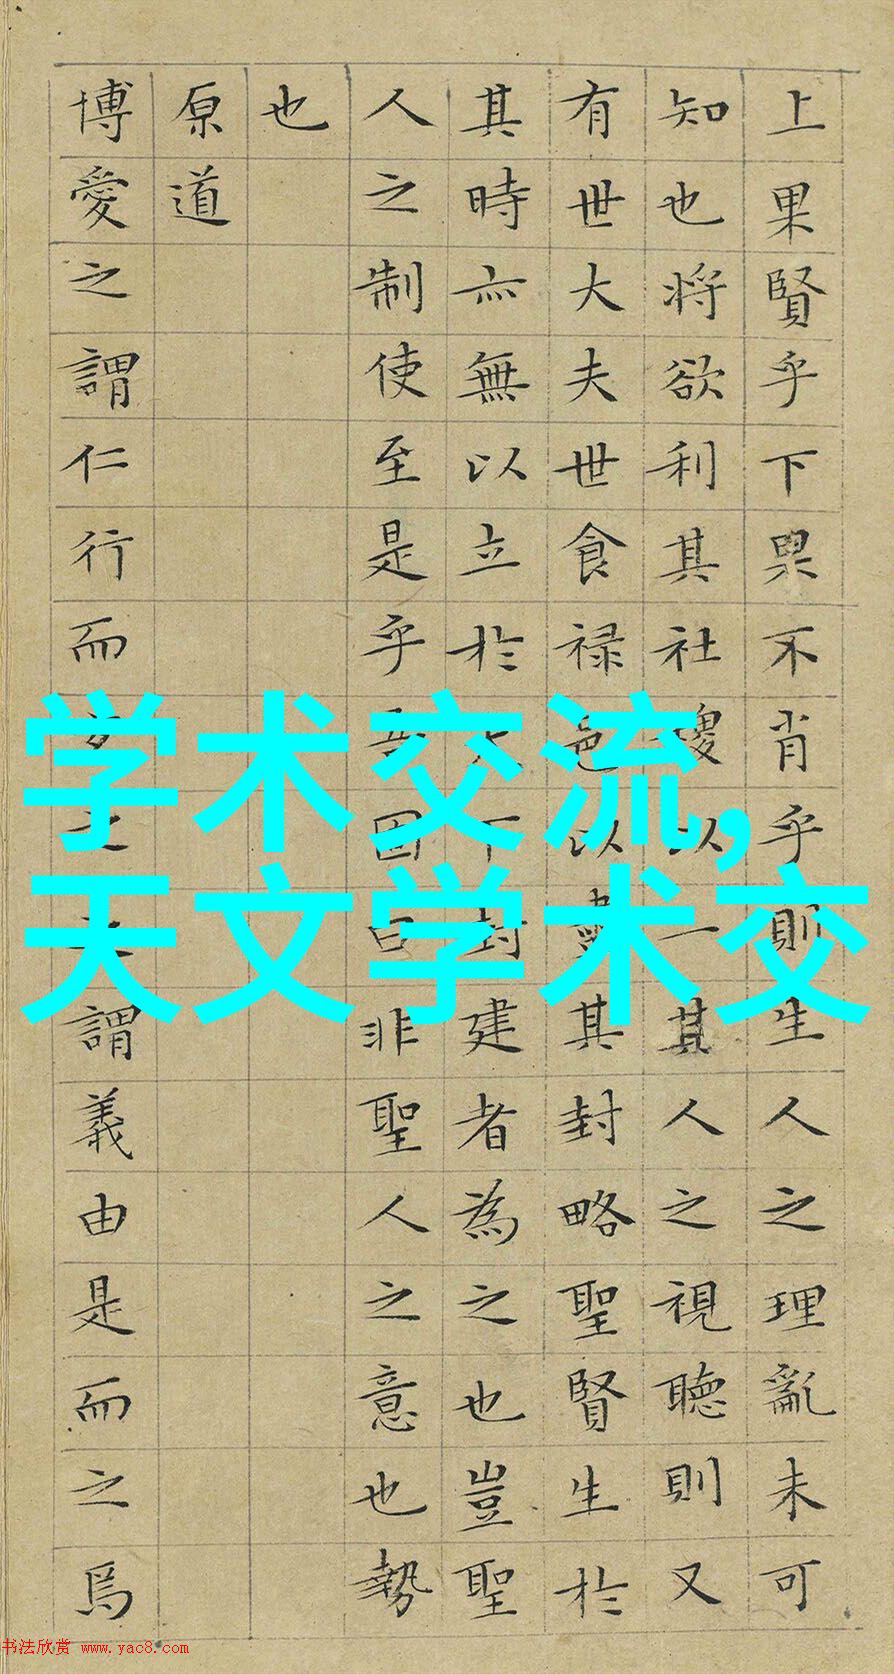 上果賢乎下果不肖乎則生人之理亂未可
知也将欲利其社稷以一其人之視聽則又
有世大夫世食禄邑以盡其封略聖賢生於
其時亦無以立於天下封建者為之也豈聖
人之制使至是乎吾固曰非聖人之意也勢
也
原道
博愛之謂仁行而宜之之謂義由是而之焉
学术交流,
天文学术交
书法欣赏 www.yac8.com